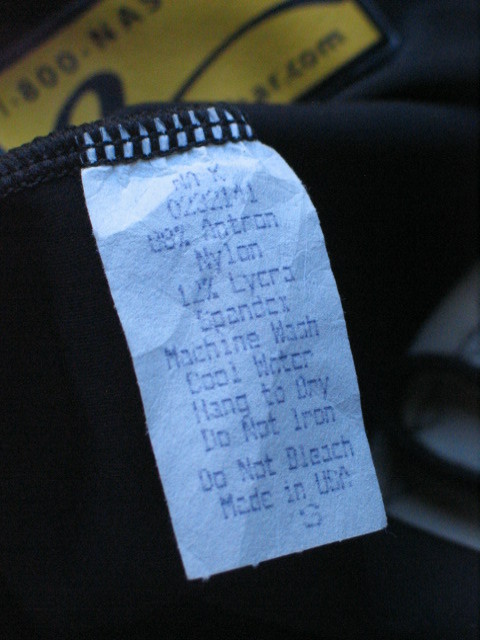 1-800-NAS
ar.com
RN K
0232141
88% Antron
Nylon
12% Lycra
Spandex
Machine Wash
Cool Water
Hang to Dry
Do Not Iron
Do Not Bleach
Made in USA
S